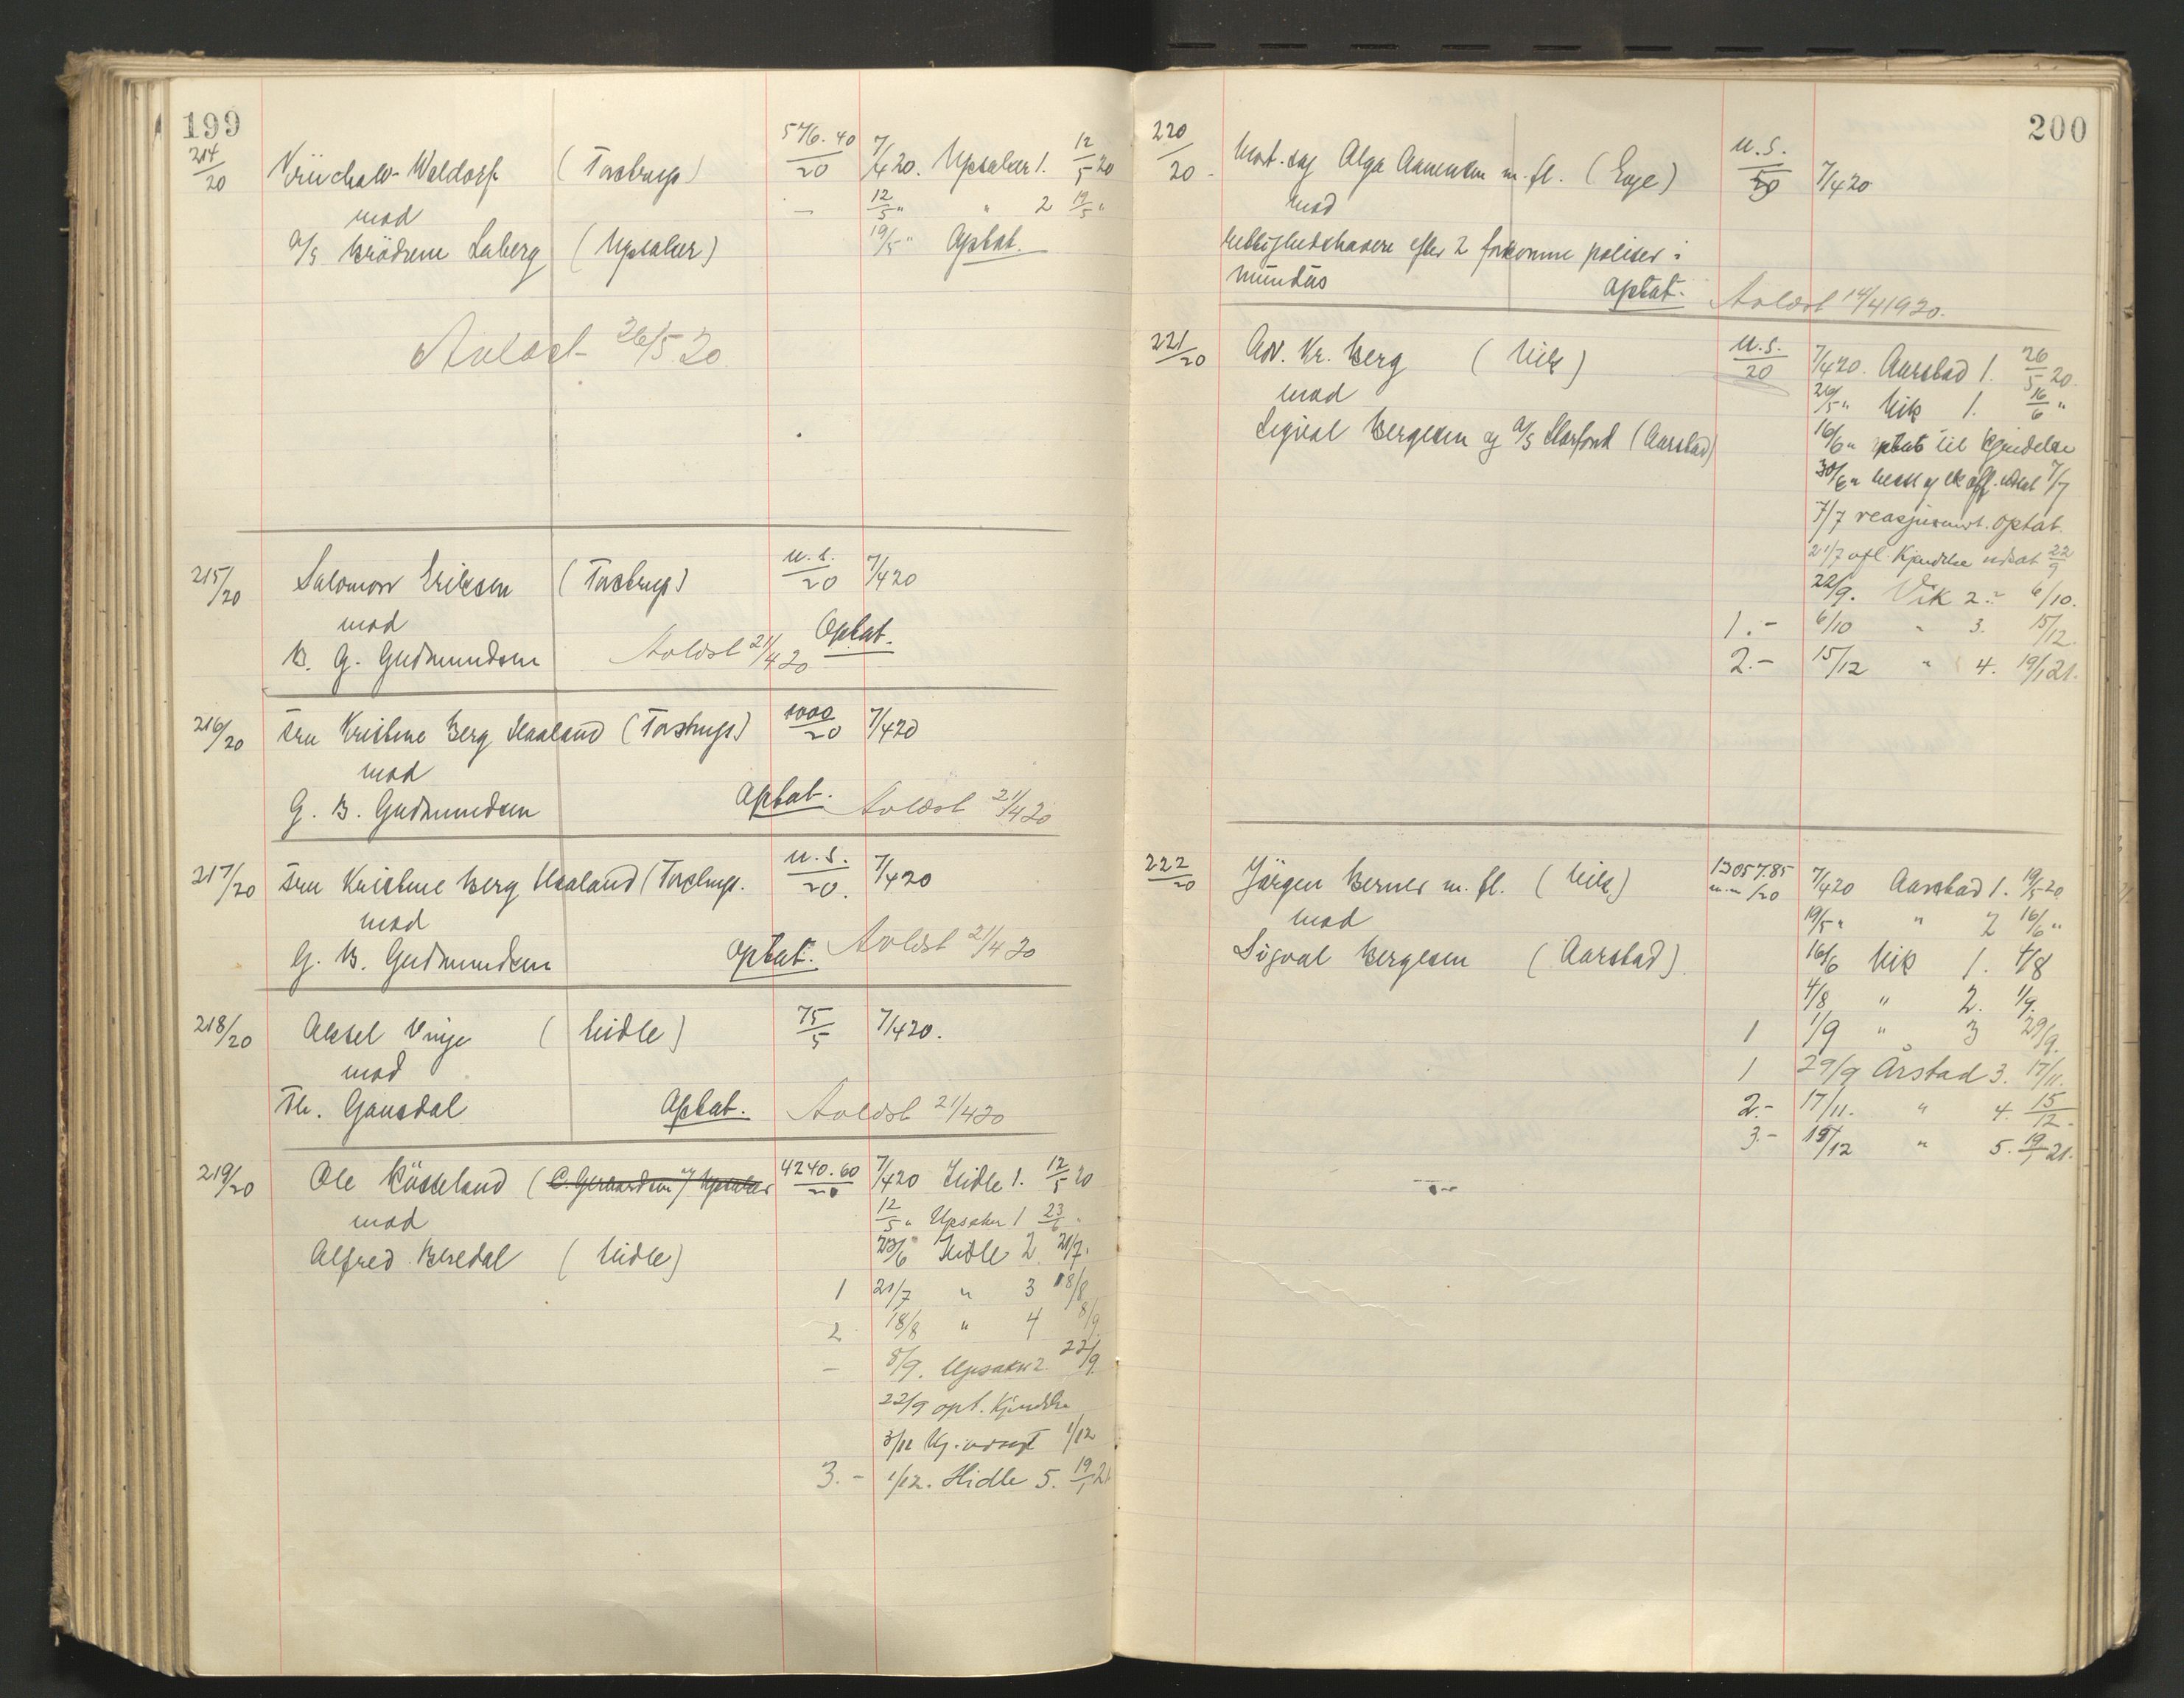 199
214/20 Waldorf (Tastrup) 576.40/20 7/4 20. Upsaker 1. 12/5 20
mod — 12/5 " " 2 19/5 "
A/S Brödrene Laberg (Upsaker) 19/5 " Optat.
Avlæst 26/5 20
215/20 Salomon Eriksen (Tastrup) u.s./20 7/4 20
mod Optat.
B. G. Gudmundsen Avlæst 21/4 20
216/20 Fru Kristine Berg Haaland (Tastrup) 1000/20 7/4 20
mod
G. B. Gudmundsen Optat. Avlæst 21/4 20
217/20 Fru Kristine Berg Haaland (Tastrup. u.s./20. 7/4 20
mod
G. B. Gudmundsen Optat. Avlæst 21/4 20
218/20 Aksel Vinje (Hidle) 75/5 7/4 20.
mod
Th. Gausdal Optat. Avlæst 21/4 20
219/20 Ole Kösseland (C. Gerhardsen v/ Upsaker 4240.60/20 7/4 20 Hidle 1. 12/5 20
mod 12/5 " Upsaker 1 23/6 "
Alfred Bredal (Hidle) 23/6 " Hidle 2 21/7.
1 21/7 " 3 18/8
2 18/8 " 4 8/9
— 8/9. Upsaker 2 22/9
22/9 opt. Kjendelse
3/11 Kj. avsagt 1/12
3.- 1/12. Hidle 5. 19/1 21
200
220/20. Mort. sag Olga Aanensen m. fl. (Eoje) u.s./50 7/4 20
mod
rettighedshavere efter 2 forkomne poliser i
Mundus Optat. Avlæst 14/4 1920.
221/20 Adv. Kr. Berg (Vik) u.s./20 7/4 20. Aarstad 1. 26/5 20.
mod 26/5 " Vik 1. 16/6 "
Sigval Bergesen og A/S Storfond (Aarstad) 16/6 " optat til kjendelse
30/6 " utsat 7/7
7/7 reasjumert. Optat.
21/7 afl. Kjendelse utsat 22/9
22/9. Vik 2.- 6/10.
1.- 6/10 " 3. 15/12.
2.- 15/12 " 4. 19/1 21.
222/20 Jörgen Berner m. fl. (Vik) 13057.85 m.m/20 7/4 20 Aarstad 1. 19/5 20
mod 19/5 " " 2 16/6 "
Sigval Bergesen (Aarstad). 16/6 Vik 1. 4/8
4/8 " 2. 1/9.
1 1/9 " 3 29/9.
1 29/9 Årstad 3. 17/11.
2.- 17/11. " 4. 15/12.
3.- 15/12 " 5. 19/1 21.